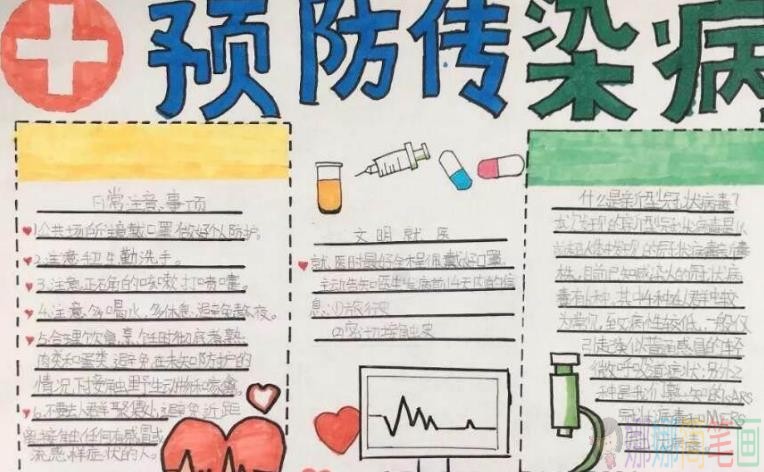 预防传染病
日常注意事项
1.公共场所注意戴口罩,做好个人防护。
2.注意卫生,勤洗手。
3.注意正确的咳嗽,打喷嚏。
4.注意多喝水,多休息,避免熬夜。
5.合理饮食,烹饪时彻底煮熟
肉类和蛋类,避免在未加防护的
情况下接触野生动物和家禽
6.不要去人群聚集处,避免近距
离接触任何有感冒或
流感样症状的人。
文明就医
就医时最好全程佩戴好口罩,
主动告知医生发病前14天内的信
息:(1)旅行史
(2)密切接触史
什么是新型冠状病毒?
发现的新型冠状病毒是
的冠状病毒新毒
株,目前已知感染人的冠状病
毒有6种,其中4种在人群中较
为常见,致病性较低,一般仅
引起类似普通感冒的轻
微呼吸道症状;另外2
种是我们熟知的SARS
冠状病毒和MERS
冠状病毒
娜娜简笔画